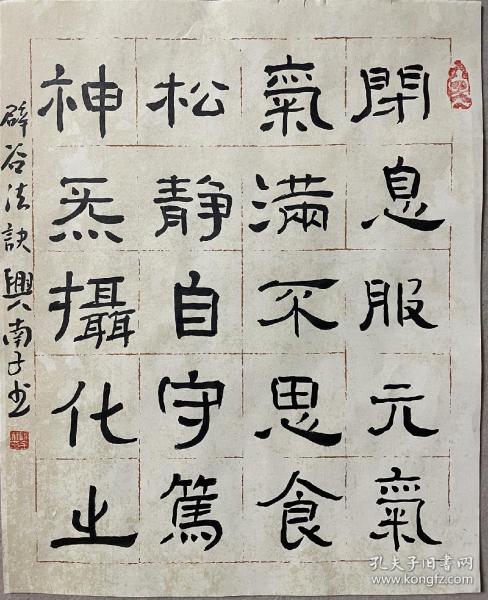 閉息服元氣
氣滿不思食
松靜自守篤
神炁攝化之
辟谷法訣興南子书
孔夫子旧书网
www.kongfz.com